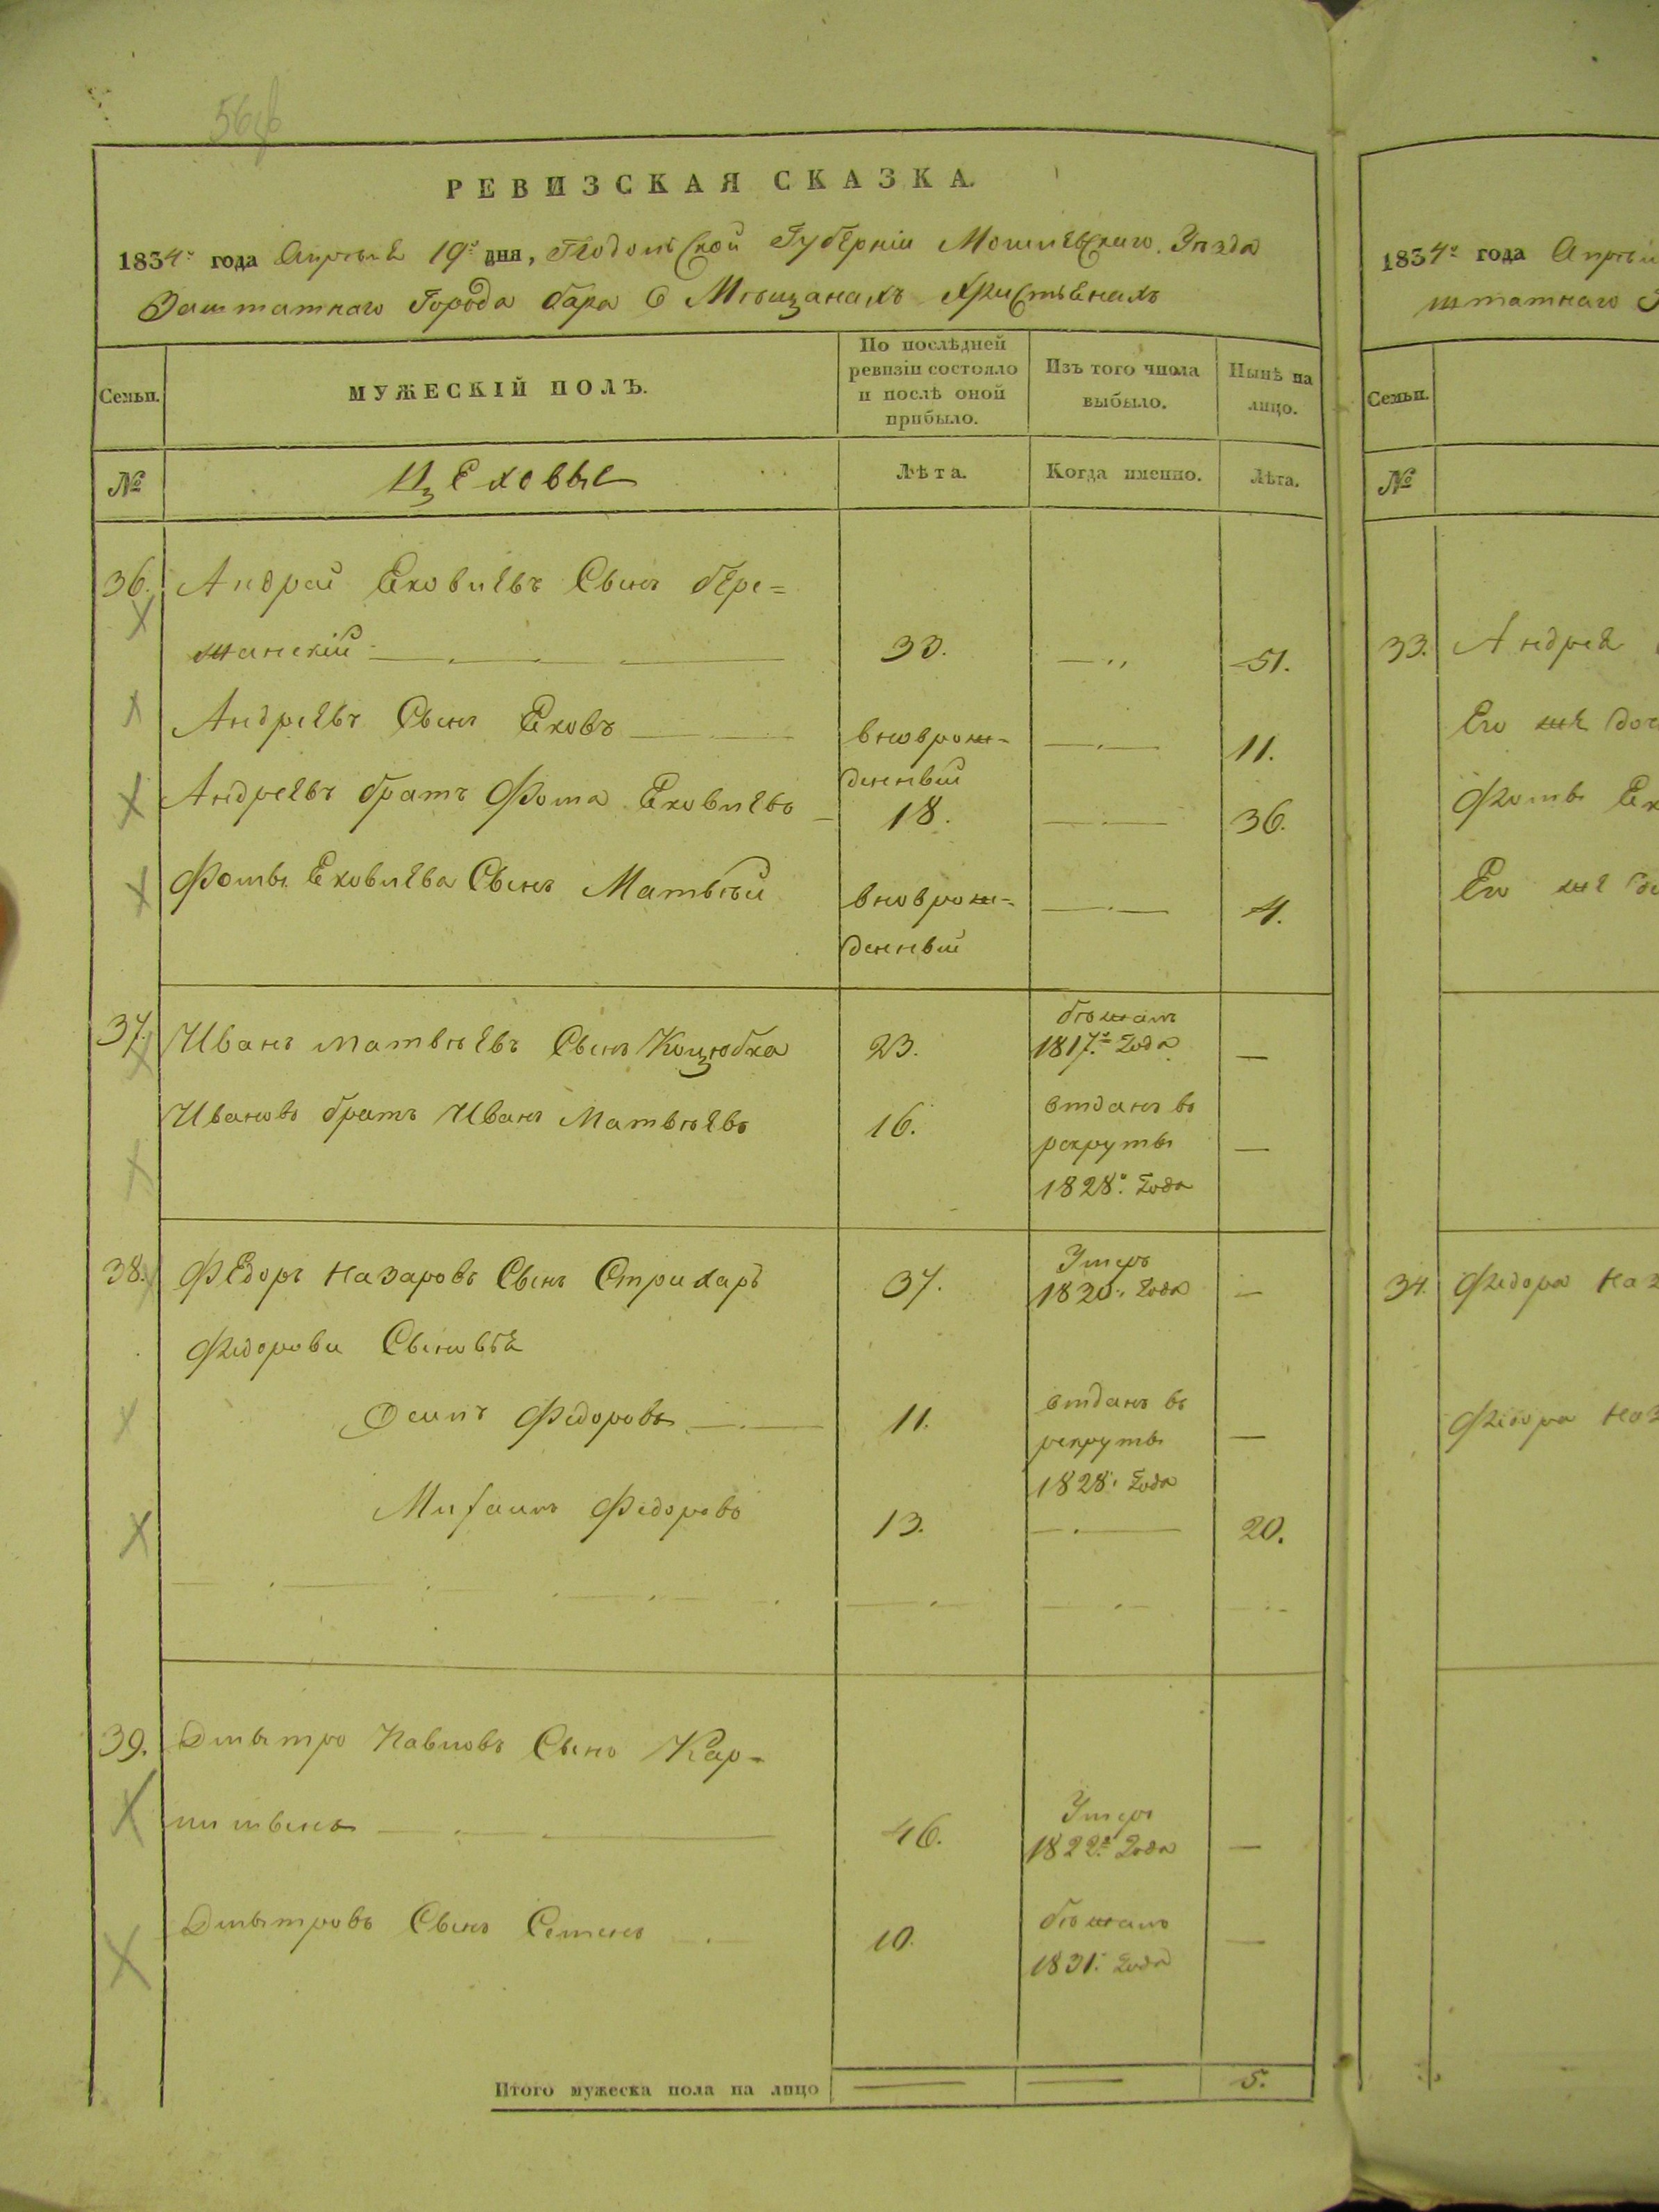 56об
РЕВИЗСКАЯ СКАЗКА.
1834го года Апреля 19го дня, Подольской Губерніи Могилевскаго Уезда
Заштатнаго Города бара О Мѣщанахъ Христьенахъ
Семьи.
МУЖЕСКІЙ ПОЛЪ.
По послѣдней ревизіи состояло и послѣ оной прибыло.
Изъ того числа выбыло.
Нынѣ на лицо.
№
Цеховые
Лѣта.
Когда именно.
Лѣта.
36. Андрей Яковлевъ Сынъ бере=
жанскій 33. 51.
Андреевъ Сынъ Яковъ вноврож=
денный 11.
Андреевъ братъ Фома Яковлевъ 18. 36.
Фомы Яковлева Сынъ Матвѣй вноврож=
денный 4.
37. Иванъ Матвѣевъ Сынъ Коцюбка 23. бѣжалъ
1817го года —
Ивановъ братъ Иванъ Матвѣевъ 16. отданъ въ
рекруты
1828го года —
38. Федоръ Назаровъ Сынъ Стрихаръ 37. Умеръ
1820го года —
Федоровы Сыновья
Осипъ Федоровъ 11. отданъ въ
рекруты
1828го года —
Михаилъ Федоровъ 13. 20.
39. Дмытро Павловъ Сынъ Кар-
пишынъ 46. Умеръ
1822го года —
Дмытровъ Сынъ Семенъ 10. бѣжалъ
1831го года —
Итого мужеска пола на лицо 5.
1834го года
штатнаго
Семьи.
№
33. Андрея
Его же доч
Фомы
Его же
34. Федора Наз
Федора Наз